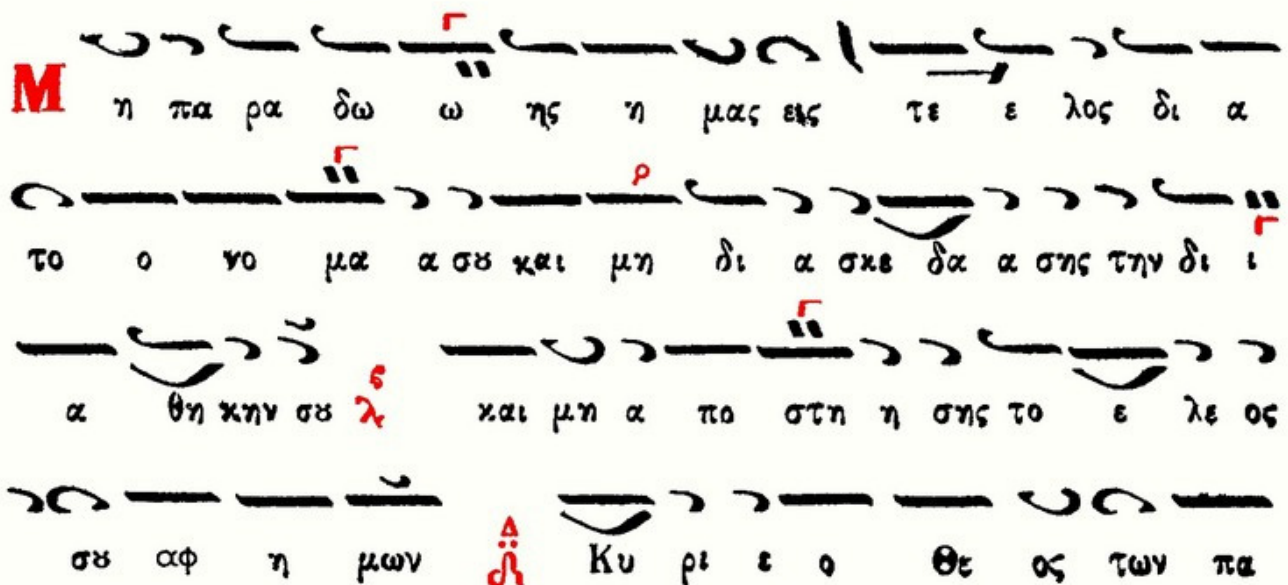 Μ η πα ρα δω ω ης η μας εις τε ε λος δι α
το ο νο μα α σȣ και μη δι α σκε δα α σης την δι ι
α θη κην σȣ και μη α πο στη η σης το ε λε ος
σȣ αφ η μων Κυ ρι ε ο Θε ος των πα